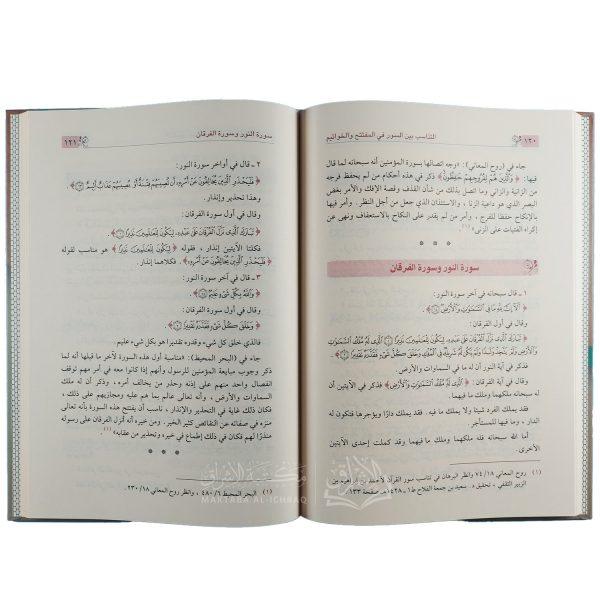 ١٢٠
التناسب بين السور في المفتتح والخواتيم
جاء في (روح المعاني): «وجه اتصالها بسورة المؤمنين أنه سبحانه لما قال
فيها: ﴿وَالَّذِينَ هُمْ لِفُرُوجِهِمْ حَافِظُونَ﴾ ذكر في هذه أحكام من لم يحفظ فرجه
من الزانية والزاني وما اتصل بذلك من شأن القذف وقصة الإفك والأمر بغض
البصر الذي هو داعية الزنا، والاستئذان الذي جعل من أجل النظر. وأمر فيها
بالإنكاح حفظا للفرج، وأمر من لم يقدر على النكاح بالاستعفاف ونهى عن
إكراه الفتيات على الزنى»(١)
* * *
سورة النور وسورة الفرقان
١ ـ قال سبحانه في آخر سورة النور:
﴿أَلَا إِنَّ لِلَّهِ مَا فِي السَّمَاوَاتِ وَالْأَرْضِ﴾
وقال في أول الفرقان:
﴿تَبَارَكَ الَّذِي نَزَّلَ الْفُرْقَانَ عَلَى عَبْدِهِ لِيَكُونَ لِلْعَالَمِينَ نَذِيرًا ۝ الَّذِي لَهُ مُلْكُ السَّمَاوَاتِ
وَالْأَرْضِ وَلَمْ يَتَّخِذْ وَلَدًا وَلَمْ يَكُن لَّهُ شَرِيكٌ فِي الْمُلْكِ وَخَلَقَ كُلَّ شَيْءٍ فَقَدَّرَهُ تَقْدِيرًا﴾
فذكر في آية النور أن له ما في السماوات والأرض.
وقال في آية الفرقان: ﴿الَّذِي لَهُ مُلْكُ السَّمَاوَاتِ وَالْأَرْضِ﴾ فذكر في الآيتين أن
له ملكهما وله ملك ما فيهما.
فقد يملك الفرد شيئا ولا يملك ما فيه. فقد يملك دارًا ويؤجرها فتكون له
الدار، وما فيها للمستأجر.
أما الله سبحانه فله ملكهما وملك ما فيهما وقد كملت إحدى الآيتين
الأخرى.
(١) روح المعاني ٧٤/١٨ وانظر البرهان في تناسب سور القرآن لأحمد بن إبراهيم بن
الزبير الثقفي، تحقيق د. سعيد بن جمعة الفلاح ط١ ـ ١٤٢٨هـ صفحة ١٣٣
سورة النور وسورة الفرقان
١٢١
٢ ـ قال في أواخر سورة النور:
﴿فَلْيَحْذَرِ الَّذِينَ يُخَالِفُونَ عَنْ أَمْرِهِ أَن تُصِيبَهُمْ فِتْنَةٌ أَوْ يُصِيبَهُمْ عَذَابٌ أَلِيمٌ﴾
وهذا تحذير وإنذار.
وقال في أول سورة الفرقان:
﴿تَبَارَكَ الَّذِي نَزَّلَ الْفُرْقَانَ عَلَى عَبْدِهِ لِيَكُونَ لِلْعَالَمِينَ نَذِيرًا﴾
فكلتا الآيتين إنذار، فقوله ﴿لِيَكُونَ لِلْعَالَمِينَ نَذِيرًا﴾ هو مناسب لقوله
﴿فَلْيَحْذَرِ الَّذِينَ يُخَالِفُونَ عَنْ أَمْرِهِ﴾. فكلاهما إنذار.
٣ ـ قال في آخر سورة النور:
﴿وَاللَّهُ بِكُلِّ شَيْءٍ عَلِيمٌ﴾
وقال في أول سورة الفرقان:
﴿وَخَلَقَ كُلَّ شَيْءٍ فَقَدَّرَهُ تَقْدِيرًا﴾
فالذي خلق كل شيء وقدره تقديرا هو بكل شيء عليم.
جاء في (البحر المحيط): «مناسبة أول هذه السورة لآخر ما قبلها أنه لما
ذكر وجوب مبايعة المؤمنين للرسول وأنهم إذا كانوا معه في أمر مهم توقف
انفصال واحد منهم على إذنه وحذر من يخالف أمره، وذكر أن له ملك
السماوات والأرض، وأنه تعالى عالم بما هم عليه ومجازيهم على ذلك،
فكان ذلك غاية في التحذير والإنذار، ناسب أن يفتتح هذه السورة بأنه تعالى
منزه في صفاته عن النقائص كثير الخير. ومن خيره أنه أنزل الفرقان على رسوله
منذرًا لهم فكان في ذلك إطماع في خيره وتحذير من عقابه»(١)
* * *
(١) البحر المحيط ٤٨٠/٦، وانظر روح المعاني ٢٣٠/١٨.
مكتبة الإشراق
MAKTABA AL-ICHRAQ